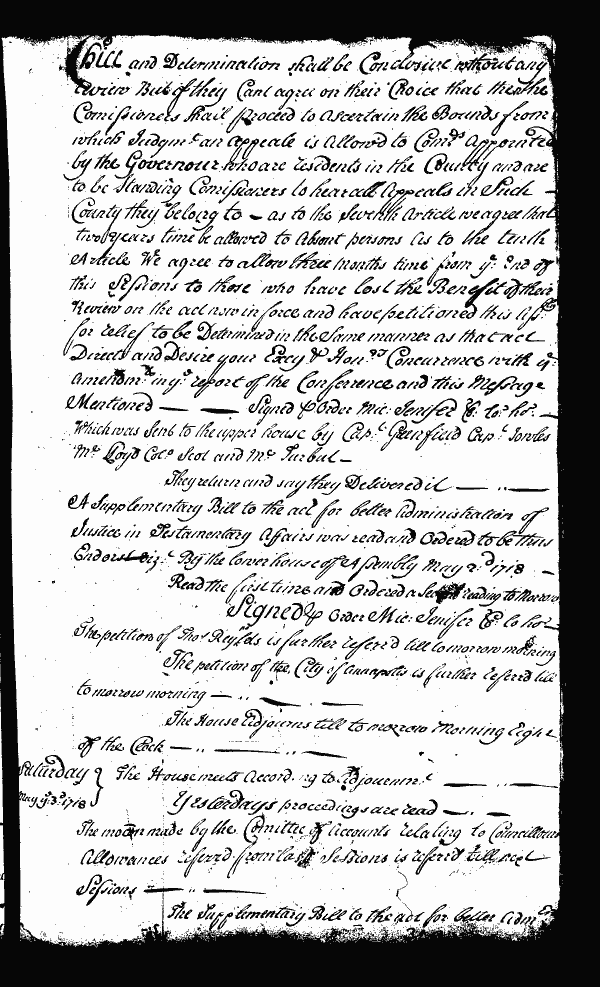 and Determination shall be Conclusive without any
review But if they Cant agree on their Choice that then the
Comissioners Shall proceed to ascertain the Bounds from
which Judgmt an appeale is allowed to Comrs appointed
by the Governour who are residents in the County and are
to be Standing Comissioners to hear all Appeals in Such —
County they belong to — as to the Seventh Article we agree that
two years time be allowed to absent persons as to the tenth
Article We agree to allow three Months time from ye End of
this Sessions to those who have lost the Benefit of their
Review on the act now in force and have petitioned this
for relief to be Determined in the Same manner as that act
Directs and Desire your Excy & Honrs Concurrence with ye
amendmts in ye report of the Conference and this Message
Mentioned — — Signed p Order Mic: Jenifer Cl: lo: ho: —
Which was Sent to the upper house by Capt Greenfield Capt Jowles
Mr Loyd Colo Scot and Mr Turbut —
They return and say they Delivered it — .. —
A Supplementary Bill to the act for better administration of
Justice in Testamentary Affairs was read and Ordered to be thus
Endorst By the lower house of Assembly May 2d 1718 —
Read the first time and Ordered a Second reading to Morrow
Signed p Order Mic: Jenifer Cl: lo ho: —
The petition of Thos Reynlds is further referrd till to morrow morning
The petition of the City of Annapolis is further referrd till
to morrow morning — .. — . —
The House Adjourns till to morrow Morning Eight
of the Clock — .. — .. —
Saturday } The House meets According to Adjournmt — —
May ye 3d 1718 } Yesterdays proceedings are read — .. —
The motion made by the Comittee of Accounts relating to Councillours
Allowances referrd from last Sessions is referrd till next
Sessions — .. —
The Supplementary Bill to the act for better